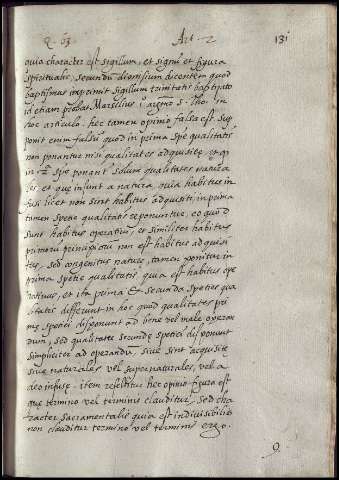 Q. 63 Art. 2 131
quia character est sigillum, et signũ et figura
spiritualis, secundũ dionisium dicentem quod
baptismus imprimit sigillum trinitatis baptizato
id etiam probat Marsilius 1º argum̃. s. tho. in
hoc articulo. hec tamen opinio falsa est. Sup
ponit enim falsũ quod in prima spẽ qualitatis
non ponantur nisi qualitates adquisitę, et q̃
in 2ª spẽ ponant solum qualitates natura
les, et que insunt a natura, quia habitus in
fusi licet non sint habitus adquisiti, in prima
tamen spetie qualitatis reponuntur, eo quod
sunt habitus operativi, et similiter habitus
primorũ principiorũ non est habitus adquisi
tus, sed congenitus naturę, tamen ponitur in
prima spetie qualitatis quia est habitus ope
rativus, et ita prima et secunda species qua
litatis differunt in hoc quod qualitates pri
mę speciei disponunt ad bene vel male operan
dum, sed qualitates secundę spetiei disponunt
simpliciter ad operandũ, sive sint acquisite
sive naturales vel supernaturales, vel a
deo infusę. item reijcitur hec opinio figura est
que termino vel terminis clauditur, sed cha
racter sacramentalis quia est indivisibilis
non clauditur termino vel terminis ergo.